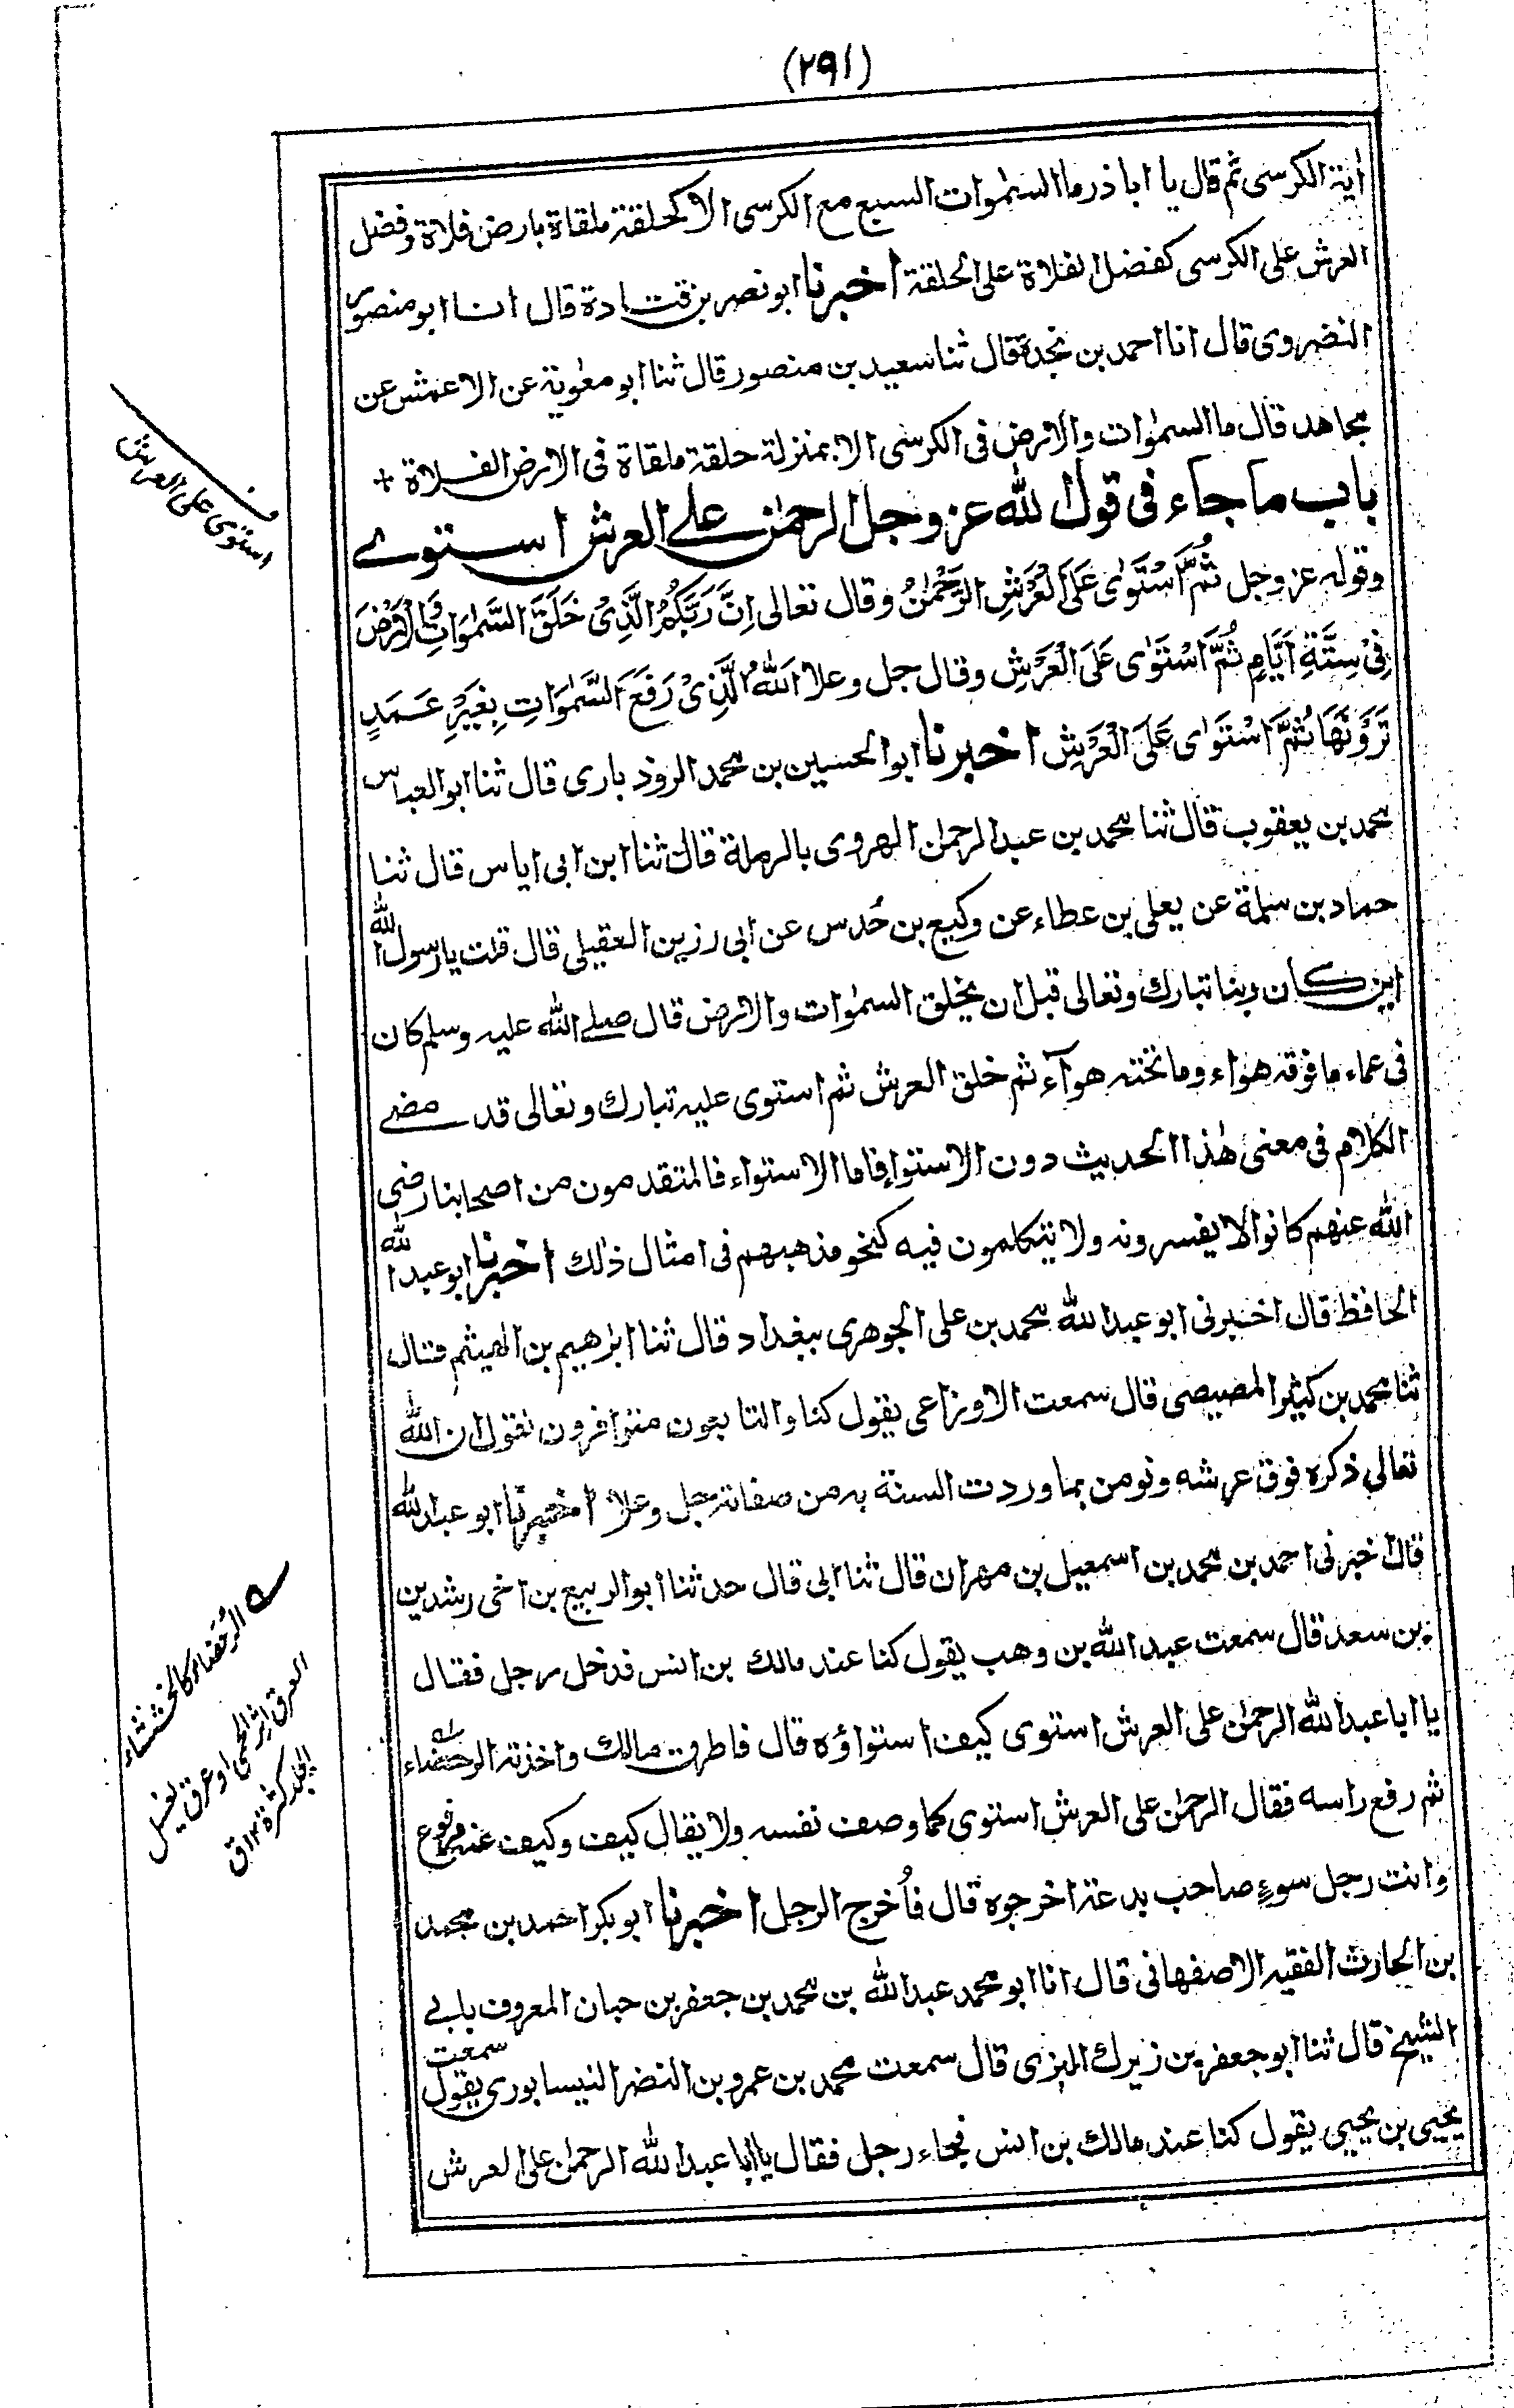 (٢٩١)
اٰية الكرسى ثم قال يا ابا ذر ما السمٰوات السبع مع الكرسى الا كحلقة ملقاة بارض فلاة وفضل
العرش على الكرسى كفضل الفلاة على الحلقة اخبرنا ابو نصر بن قتادة قال انا ابو منصور
النضروى قال انا احمد بن نجدة قال ثنا سعيد بن منصور قال ثنا ابو معٰوية عن الاعمش عن
مجاهد قال ما السمٰوات والارض فى الكرسى الا بمنزلة حلقة ملقاة فى الارض الفلاة +
باب ما جاء فى قول الله عز وجل الرحمٰن على العرش استوى
وقوله عز وجل ثُمَّ اسْتَوٰى عَلَى الْعَرْشِ الرَّحْمٰنُ وقال تعالى اِنَّ رَبَّكُمُ الَّذِىْ خَلَقَ السَّمٰوَاتِ وَالْاَرْضَ
فِىْ سِتَّةِ اَيَّامٍ ثُمَّ اسْتَوٰى عَلَى الْعَرْشِ وقال جل وعلا اَللهُ الَّذِىْ رَفَعَ السَّمٰوَاتِ بِغَيْرِ عَمَدٍ
تَرَوْنَهَا ثُمَّ اسْتَوٰى عَلَى الْعَرْشِ اخبرنا ابو الحسين بن محمد الروذبارى قال ثنا ابو العباس
محمد بن يعقوب قال ثنا محمد بن عبد الرحمٰن الهروى بالرملة قال ثنا ابن ابى اياس قال ثنا
حماد بن سلمة عن يعلى بن عطاء عن وكيع بن حُدس عن ابى رزين العقيلى قال قلت يا رسول الله
اين كان ربنا تبارك وتعالى قبل ان يخلق السمٰوات والارض قال صلے الله عليه وسلم كان
فى عماء ما فوقه هواء وما تحته هوآء ثم خلق العرش ثم استوى عليه تبارك وتعالى قد مضے
الكلام فى معنى هٰذا الحديث دون الاستواء فاما الاستواء فالمتقدمون من اصحابنا رضى
الله عنهم كانوا لا يفسرونه ولا يتكلمون فيه كنحو مذهبهم فى امثال ذٰلك اخبرنا ابو عبد الله
الحافظ قال اخبرنى ابو عبد الله محمد بن على الجوهرى ببغداد قال ثنا ابرٰهيم بن الهيثم قال
ثنا محمد بن كثير المصيصى قال سمعت الاوزاعى يقول كنا والتابعون متوافرون نقول ان الله
تعالى ذكره فوق عرشه ونومن بما وردت السنة به من صفاته جل وعلا اخبرنا ابو عبد الله
قال اخبرنى احمد بن محمد بن اسمعيل بن مهران قال ثنا ابى قال حدثنا ابو الربيع بن اخى رشدين
بن سعد قال سمعت عبد الله بن وهب يقول كنا عند مالك بن انس فدخل رجل فقال
يا ابا عبد الله الرحمٰن على العرش استوى كيف استواؤه قال فاطرق مالك واخذته الرحضاء
ثم رفع راسه فقال الرحمٰن على العرش استوى كما وصف نفسه ولا يقال كيف وكيف عنه مرفوع
وانت رجل سوءٍ صاحب بدعة اخرجوه قال فاُخرج الرجل اخبرنا ابو بكر احمد بن محمد
بن الحارث الفقيه الاصفهانى قال انا ابو محمد عبد الله بن محمد بن جعفر بن حبان المعروف بابے
الشيخ قال ثنا ابو جعفر بن زيرك اليزدى قال سمعت محمد بن عمرو بن النضر النيسابورى يقول سمعت
يحيى بن يحيى يقول كنا عند مالك بن انس فجاء رجل فقال يا ابا عبد الله الرحمٰن على العرش
استوى على العرش
الرُحَضاء كالخششاء
العرق اثر الحمى او عرق يغسل
الجلد كثرة ١٢ ق